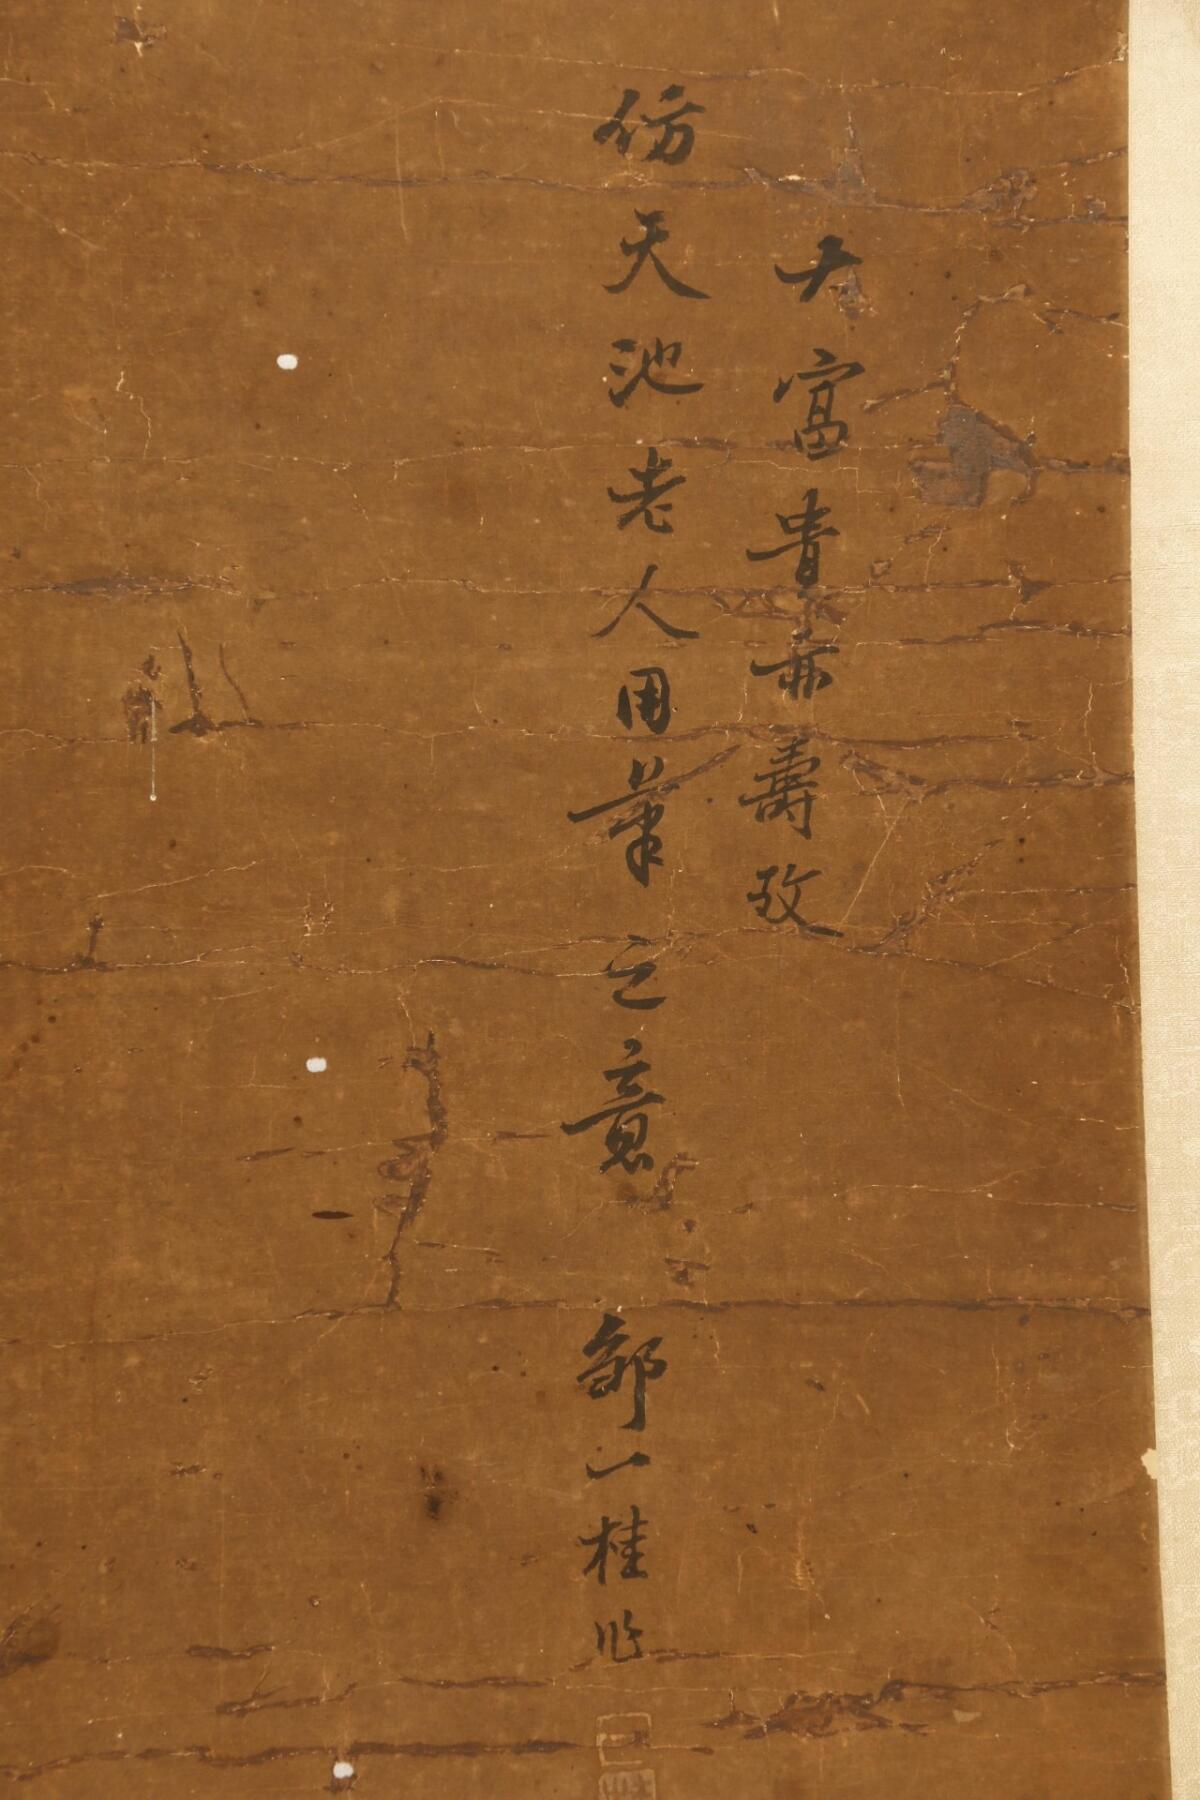 大富貴亦壽攷
仿天池老人用筆之意 鄒一桂作